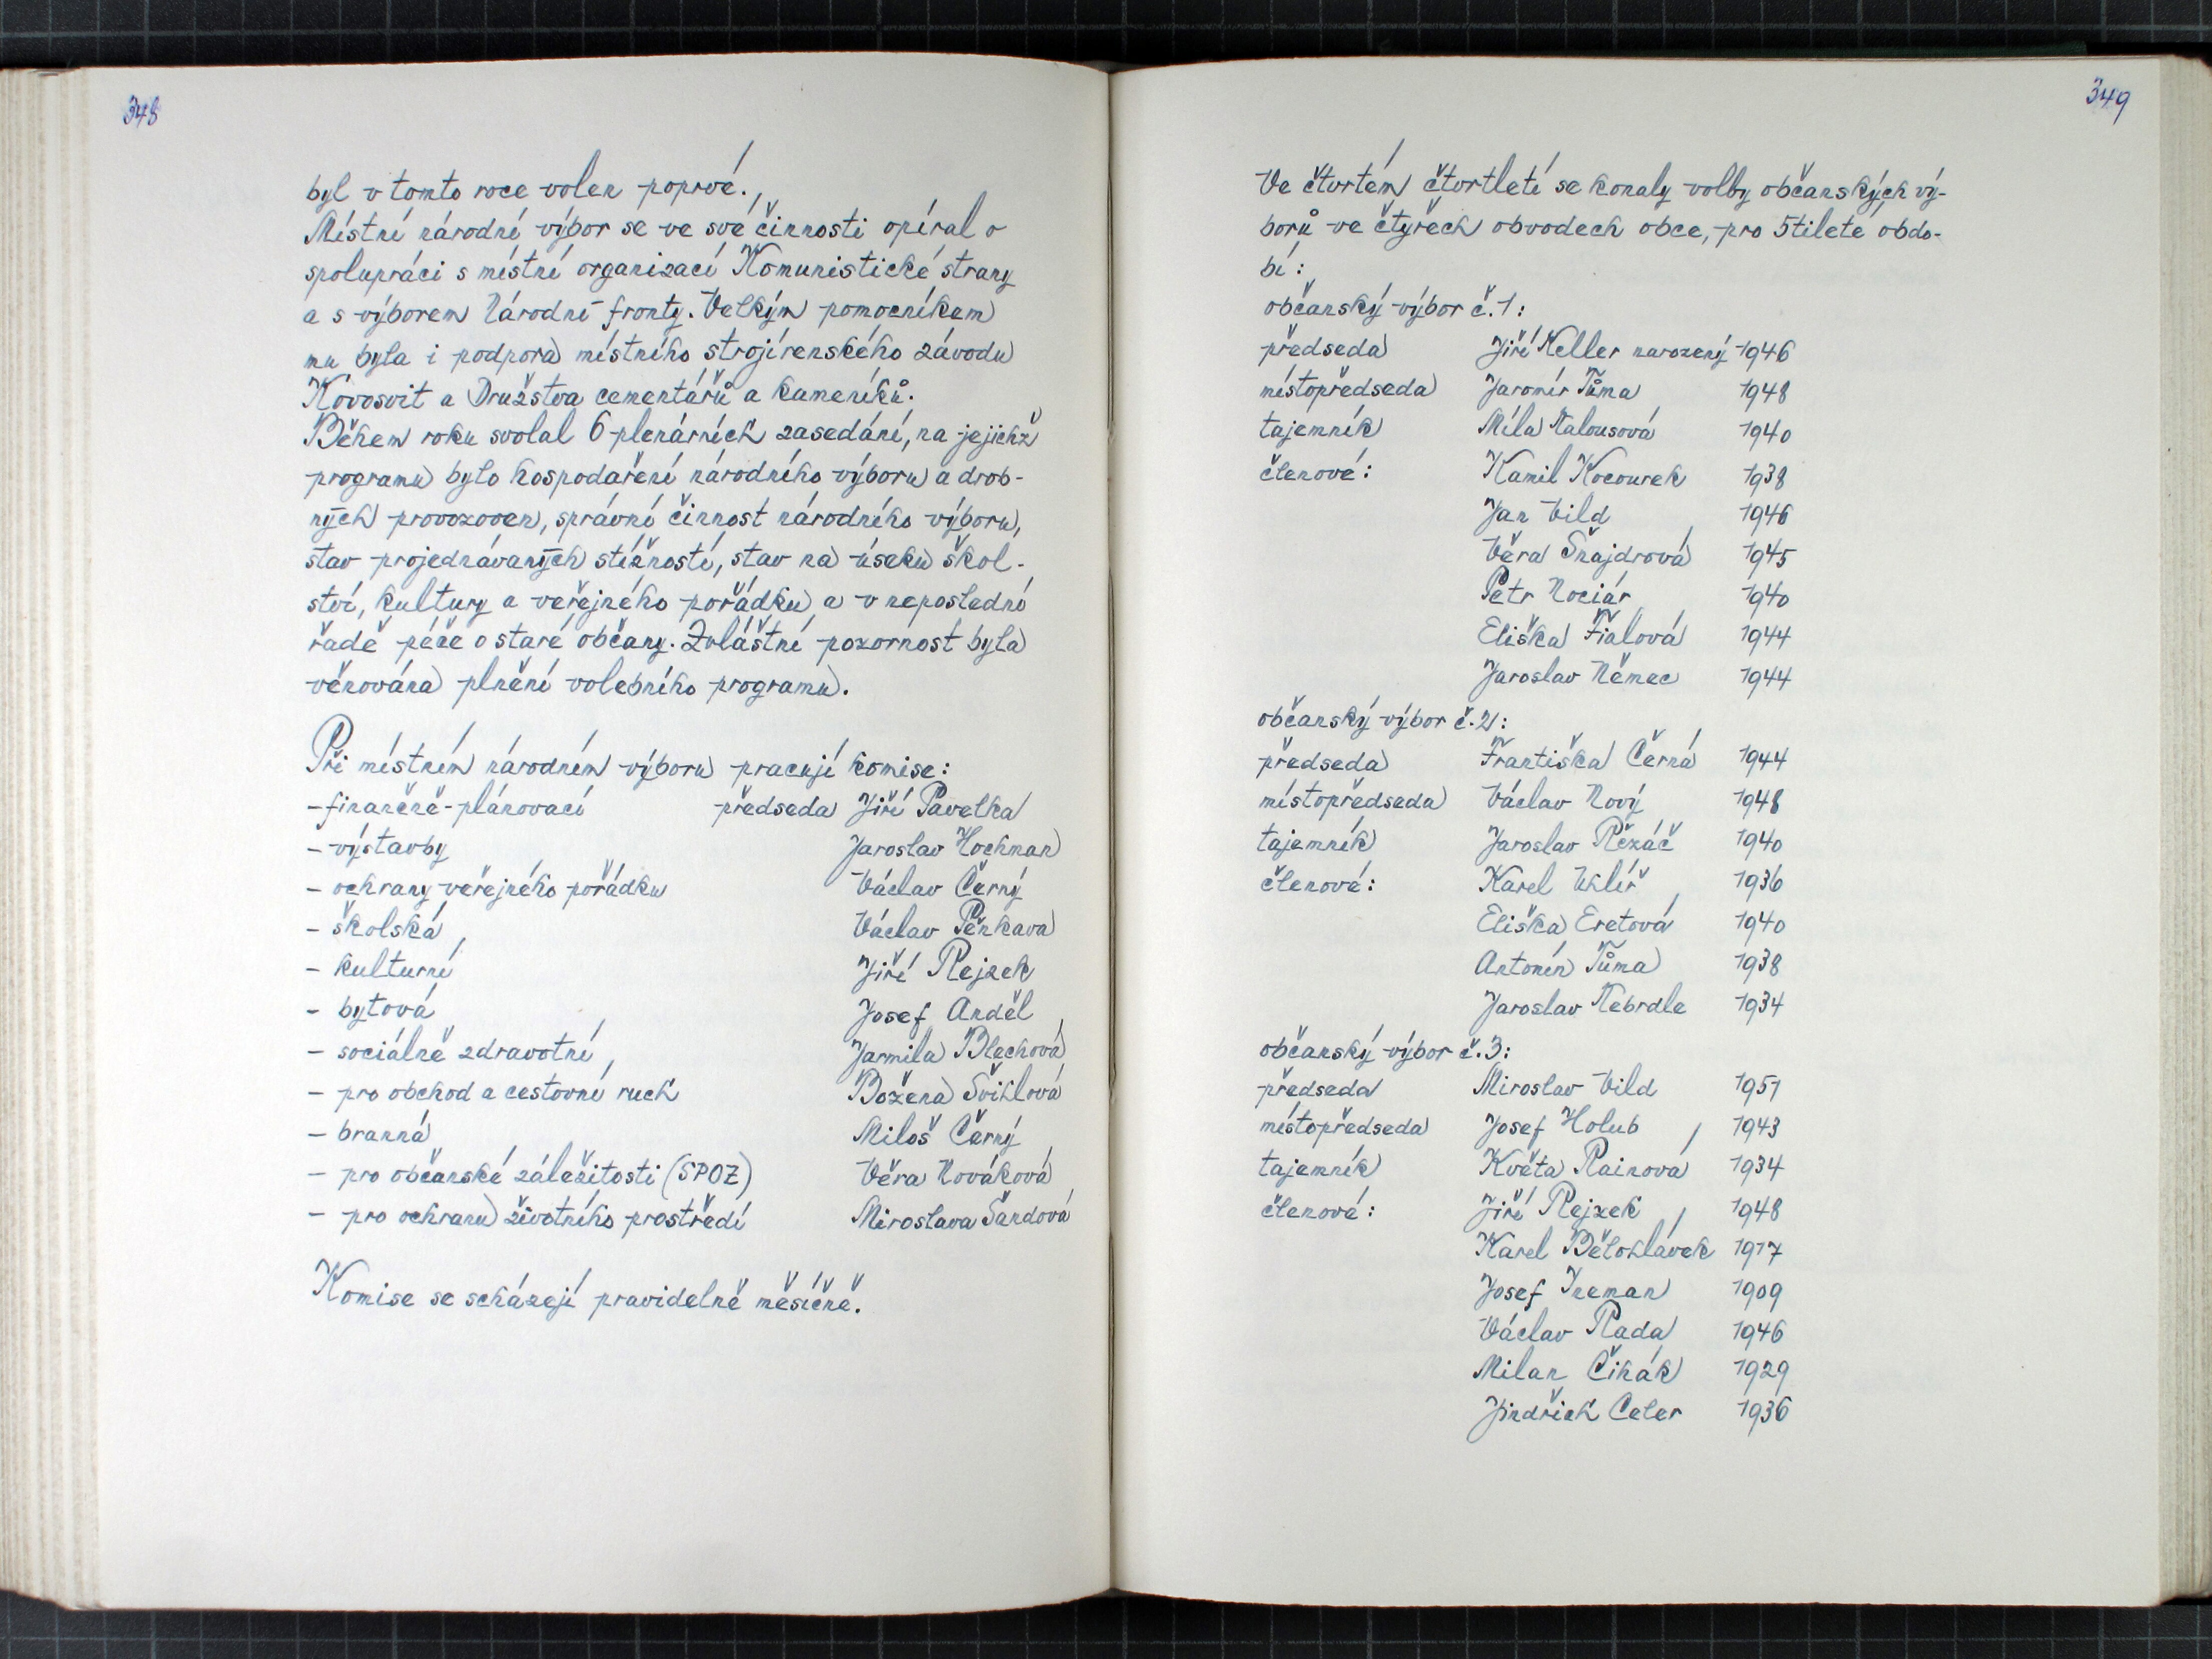 348
byl v tomto roce volen poprvé.
Místní národní výbor se ve své činnosti opíral o
spolupráci s místní organizací Komunistické strany
a s výborem Národní fronty. Velkým pomocníkem
mu byla i podpora místního strojírenského závodu
Kovosvit a Družstva cementářů a kameníků.
Během roku svolal 6 plenárních zasedání, na jejichž
programu bylo hospodaření národního výboru a drob-
ných provozoven, správní činnost národního výboru,
stav projednávaných stížností, stav na úseku škol-
ství, kultury a veřejného pořádku a v neposlední
řadě péče o staré občany. Zvláštní pozornost byla
věnována plnění volebního programu.
Při místním národním výboru pracují komise:
- finančně-plánovací předseda Jiří Pavelka
- výstavby Jaroslav Hochman
- ochrany veřejného pořádku Václav Černý
- školská Václav Pěnkava
- kulturní Jiří Rejzek
- bytová Josef Anděl
- sociálně zdravotní Jarmila Blechová
- pro obchod a cestovní ruch Božena Švihlová
- branná Miloš Černý
- pro občanské záležitosti (SPOZ) Věra Nováková
- pro ochranu životního prostředí Miroslava Šandová
Komise se scházejí pravidelně měsíčně.
349
Ve čtvrtém čtvrtletí se konaly volby občanských vý-
borů ve čtyřech obvodech obce, pro 5tileté obdo-
bí:
občanský výbor č. 1:
předseda Jiří Keller narozený 1946
místopředseda Jaromír Tůma 1948
tajemník Míla Kalousová 1940
členové: Kamil Kocourek 1938
Jan Vild 1946
Věra Šnajdrová 1945
Petr Nociár 1940
Eliška Fialová 1944
Jaroslav Němec 1944
občanský výbor č. 2:
předseda Františka Černá 1944
místopředseda Václav Nový 1948
tajemník Jaroslav Řezáč 1940
členové: Karel Uhlíř 1936
Eliška Eretová 1940
Antonín Tůma 1938
Jaroslav Nebrdle 1934
občanský výbor č. 3:
předseda Miroslav Vild 1951
místopředseda Josef Holub 1943
tajemník Květa Rainová 1934
členové: Jiří Rejzek 1948
Karel Bělohlávek 1917
Josef 1909
Václav Rada 1946
Milan Čihák 1929
Jindřich Celer 1936